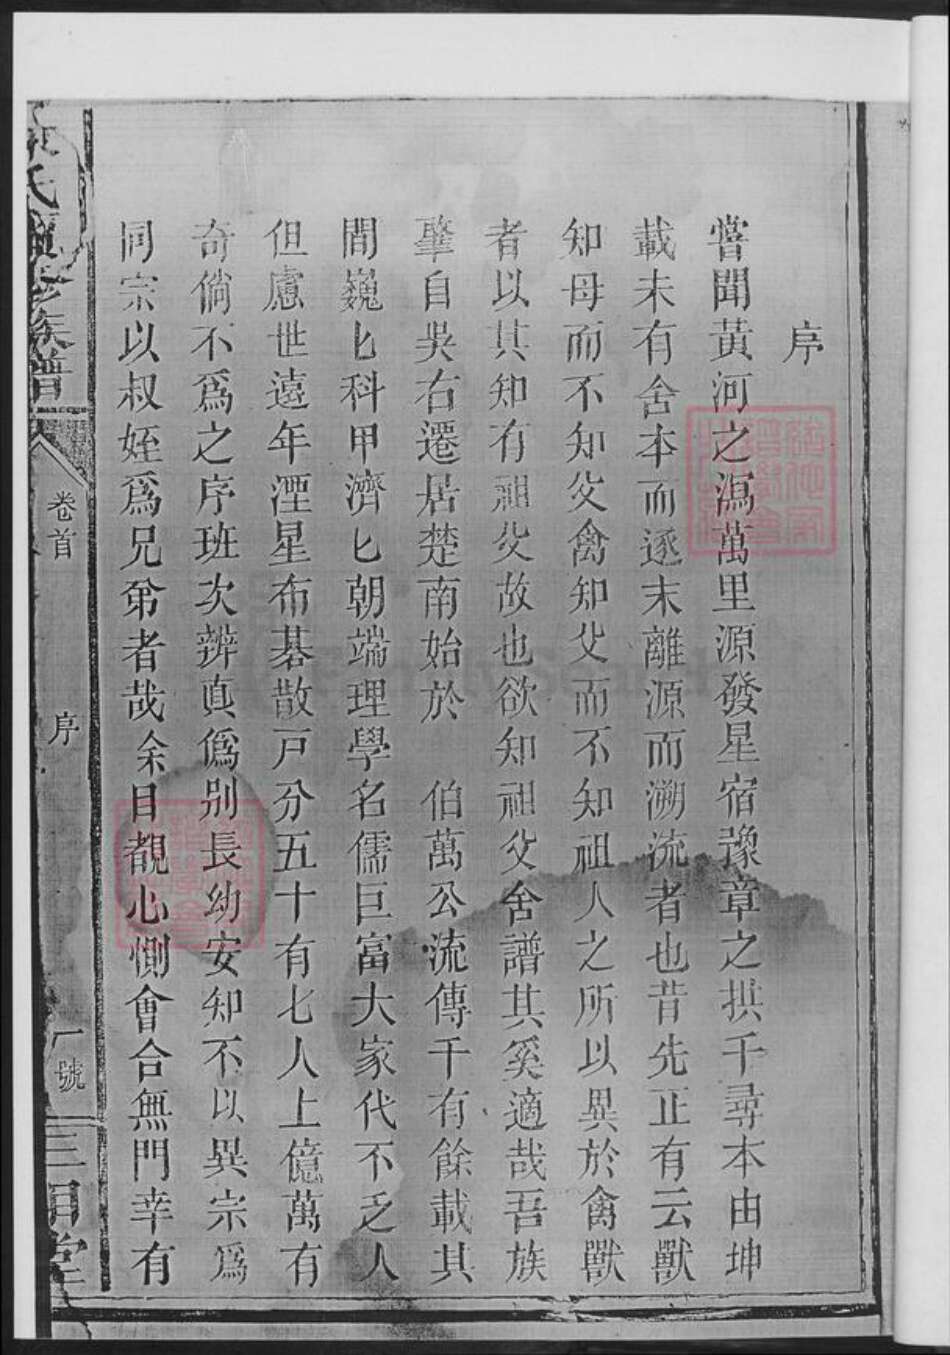 序
嘗聞黃河之瀉萬里源發星宿豫章之拱千尋本由坤
載未有舍本而逐末離源而溯流者也昔先正有云獸
知母而不知父禽知父而不知祖人之所以異於禽獸
者以其知有祖父故也欲知祖父舍譜其奚適哉吾族
肇自吳右遷居楚南始於 伯萬公流傳千有餘載其
間巍匕科甲濟匕朝端理學名儒巨富大家代不乏人
但慮世遠年湮星布碁散戸分五十有七人上億萬有
奇倘不爲之序班次辨真僞别長幼安知不以異宗爲
同宗以叔姪爲兄弟者哉余目覩心惻會合無門幸有
氏 族譜
卷首
序
號
三 堂